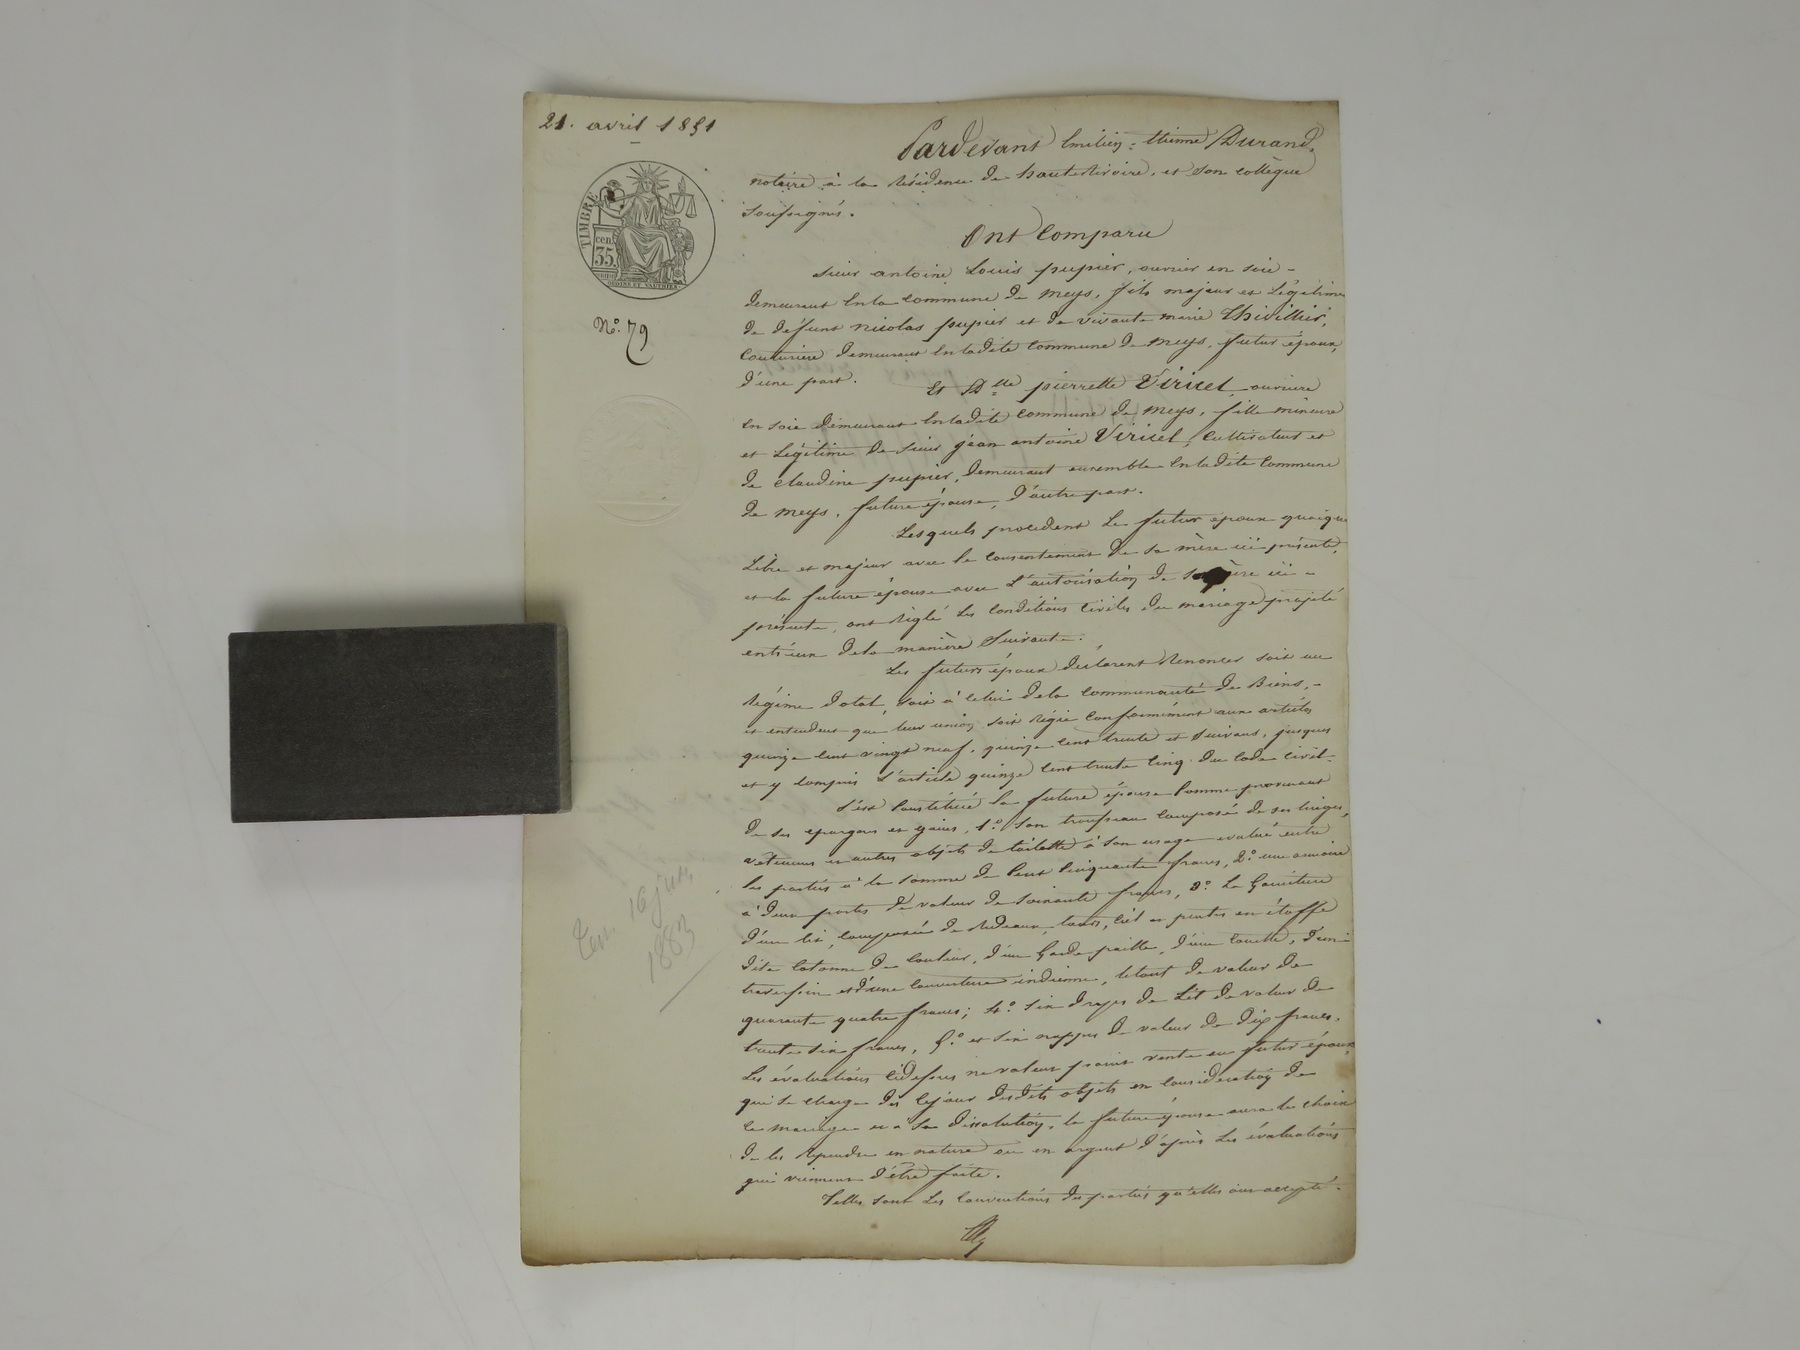 21. avril 1851
Pardevant Emilien = Etienne Durand,
notaire à la Résidence de hauterivoire, et son collègue
soussignés.
TIMBRE
cen.
35.
OUDINE ET VAUTHIER
Ont Comparu
Sieur antoine Louis pupier, ouvrier en soie -
demeurant en la commune de meys, fils majeur et Légitime
N°. 79
de défunt nicolas pupier et de vivante marie Thivillier,
Couturière demeurant en ladite commune de meys, futur époux,
d'une part.
Et Dlle pierrette Viricel, ouvrière
en soie demeurant en ladite commune de meys, fille mineure
et Légitime de sieur jean antoine Viricel, Cultivateur et
de claudine pupier, demeurant ensemble en ladite commune
de meys, future épouse, d'autre part.
Lesquels procèdent Le futur époux quoique
Libre et majeur avec le consentement de sa mère ici présente,
et la future épouse avec L'autorisation de ici -
présente, ont Réglé Les Conditions Civiles du mariage projeté
entr'eux de la manière Suivante.
Les futurs époux déclarent Renoncer soit au
Régime dotal, soit à celui de la Communauté de Biens, -
et entendent que leur union soit régie conformément aux articles
quinze cent vingt neuf, quinze cent trente et suivans, jusques
et y compris L'article quinze cent trente cinq du Code Civil.
S'est Constitué la future épouse comme provenant
de ses epargnes et gains, 1.° son trousseau composé de ses linges,
vêtemens et autres objets de toilette à son usage evalué entre
les parties à la somme de cent cinquante francs, 2.° une armoire
à deux portes de valeur de soixante francs, 3.° La Garniture
d'un lit, composée de Rideaux, tours, ciel et pentes en étoffe
dite cotonne de couleur, d'un Garde paille, d'une couette, d'un
traversin et d'une couverture indienne, le tout de valeur de
quarante quatre francs; 4.° six draps de Lit de valeur de
trente six francs, 5.° et six nappes de valeur de dix francs.
16 juin
1883
Les évaluations cidessus ne valent point vente au futur époux,
qui se charge dès ce jour desdits objets en considération de
ce mariage et à sa dissolution, la future épouse aura le choix
de les reprendre en nature ou en argent d'après Les évaluations
qui viennent d'être faite.
Telles sont Les Conventions des parties qu'elles ont accepté.